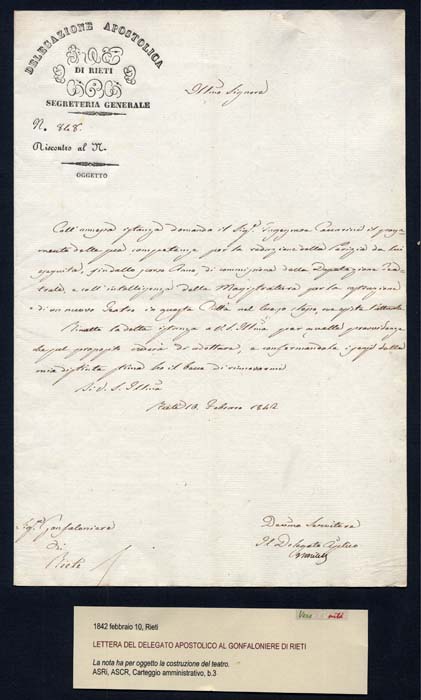 DELEGAZIONE APOSTOLICA
DI RIETI
SEGRETERIA GENERALE
N. 848.
Riscontro al N.
OGGETTO
Illmo Signore
Coll'annessa istanza domanda il Sigr. Ingegnere il paga-
mento delle sue competenze per la redazione della Perizia da lui
eseguita, fin dallo corso Anno, di commissione della Deputazione Tea-
trale, e coll'intelligenza della Magistratura per la costruzione
di un nuovo Teatro in questa Città nel luogo stesso, ove esiste l'attuale.
Rimetto la detta istanza a V. S. Illma per quelle provvidenze
che sul proposito crederà di adottare, e confermandole i sensi della
mia distinta stima ho il bene di rinnovarmi
Di V. S. Illma
Rieti 10. Febraro 1842
Sigr. Gonfaloniere
di
Rieti
Devmo Servitore
Il Delegato Aplico
1842 febbraio 10, Rieti
LETTERA DEL DELEGATO APOSTOLICO AL GONFALONIERE DI RIETI
La nota ha per oggetto la costruzione del teatro.
ASRi, ASCR, Carteggio amministrativo, b.3